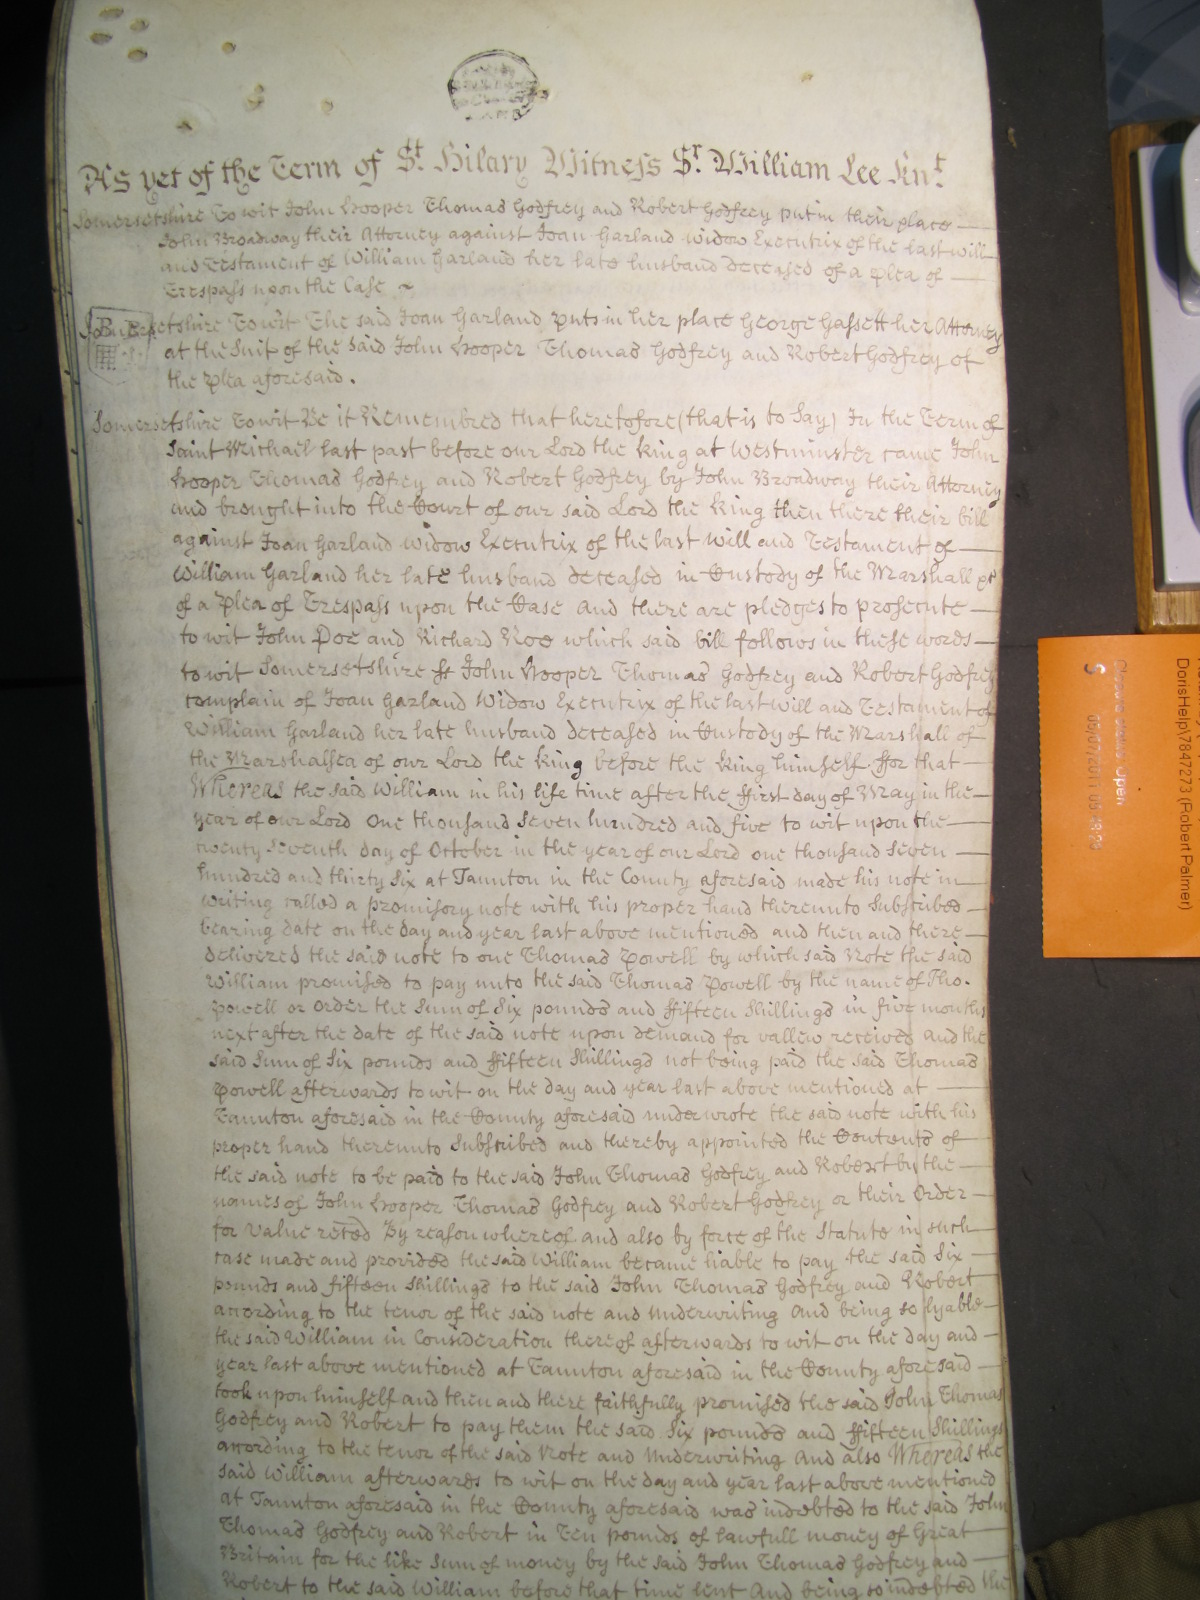 As yet of the Term of St. Hilary Witness Sr. William Lee Knt.
Somersetshire To wit John Hooper Thomas Godfrey and Robert Godfrey put in their place
John Broadway their Attorney against Joan Garland widow Executrix of the last will
and Testament of William Garland her late husband deceased of a plea of
Trespass upon the Case
Somersetshire To wit The said Joan Garland puts in her place George Gassett her Attorney
at the Suit of the said John Hooper Thomas Godfrey and Robert Godfrey of
the plea aforesaid.
Somersetshire To wit Be it Remembred that heretofore (that is to say) In the Term of
Saint Michael last past before our Lord the king at Westminster came John
Hooper Thomas Godfrey and Robert Godfrey by John Broadway their Attorney
and brought into the Court of our said Lord the king then there their bill
against Joan Garland widow Executrix of the last will and Testament of
William Garland her late husband deceased in Custody of the Marshall
of a plea of Trespass upon the Case and there are pledges to prosecute
to wit John Doe and Richard Roe which said bill follows in these words
to wit Somersetshire ss John Hooper Thomas Godfrey and Robert Godfrey
complain of Joan Garland Widow Executrix of the last will and Testament of
William Garland her late husband deceased in Custody of the Marshall of
the Marshalsea of our Lord the king before the king himself ffor that
Whereas the said William in his life time after the ffirst day of May in the
year of our Lord One thousand seven hundred and five to wit upon the
twenty seventh day of October in the year of our Lord one thousand seven
hundred and thirty six at Taunton in the County aforesaid made his note in
writing called a promisory note with his proper hand thereunto Subscribed
bearing date on the day and year last above mentioned and then and there
delivered the said note to one Thomas Powell by which said Note the said
William promised to pay unto the said Thomas Powell by the name of Tho.
powell or order the Sum of Six pounds and ffifteen Shillings in five months
next after the date of the said note upon demand for vallew received and the
said Sum of Six pounds and ffifteen Shillings not being paid the said Thomas
Powell afterwards to wit on the day and year last above mentioned at
Taunton aforesaid in the County aforesaid underwrote the said note with his
proper hand thereunto Subscribed and thereby appointed the Contents of
the said note to be paid to the said John Thomas Godfrey and Robert by the
names of John Hooper Thomas Godfrey and Robert Godfrey or their Order
for value reced By reason whereof and also by force of the Statute in such
case made and provided the said William became liable to pay the said Six
pounds and fifteen shillings to the said John Thomas Godfrey and Robert
according to the tenor of the said note and underwriting and being so lyable
the said William in Consideration thereof afterwards to wit on the day and
year last above mentioned at Taunton aforesaid in the County aforesaid
took upon himself and then and there faithfully promised the said John Thomas
Godfrey and Robert to pay them the said Six pounds and ffifteen Shillings
according to the tenor of the said Note and Underwriting And also Whereas the
said William afterwards to wit on the day and year last above mentioned
at Taunton aforesaid in the County aforesaid was indebted to the said John
Thomas Godfrey and Robert in Ten pounds of lawfull money of Great
Britain for the like Sum of money by the said John Thomas Godfrey and
Robert to the said William before that time lent And being so indebted the
DorisHelp\7847273 (Robert Palmer)